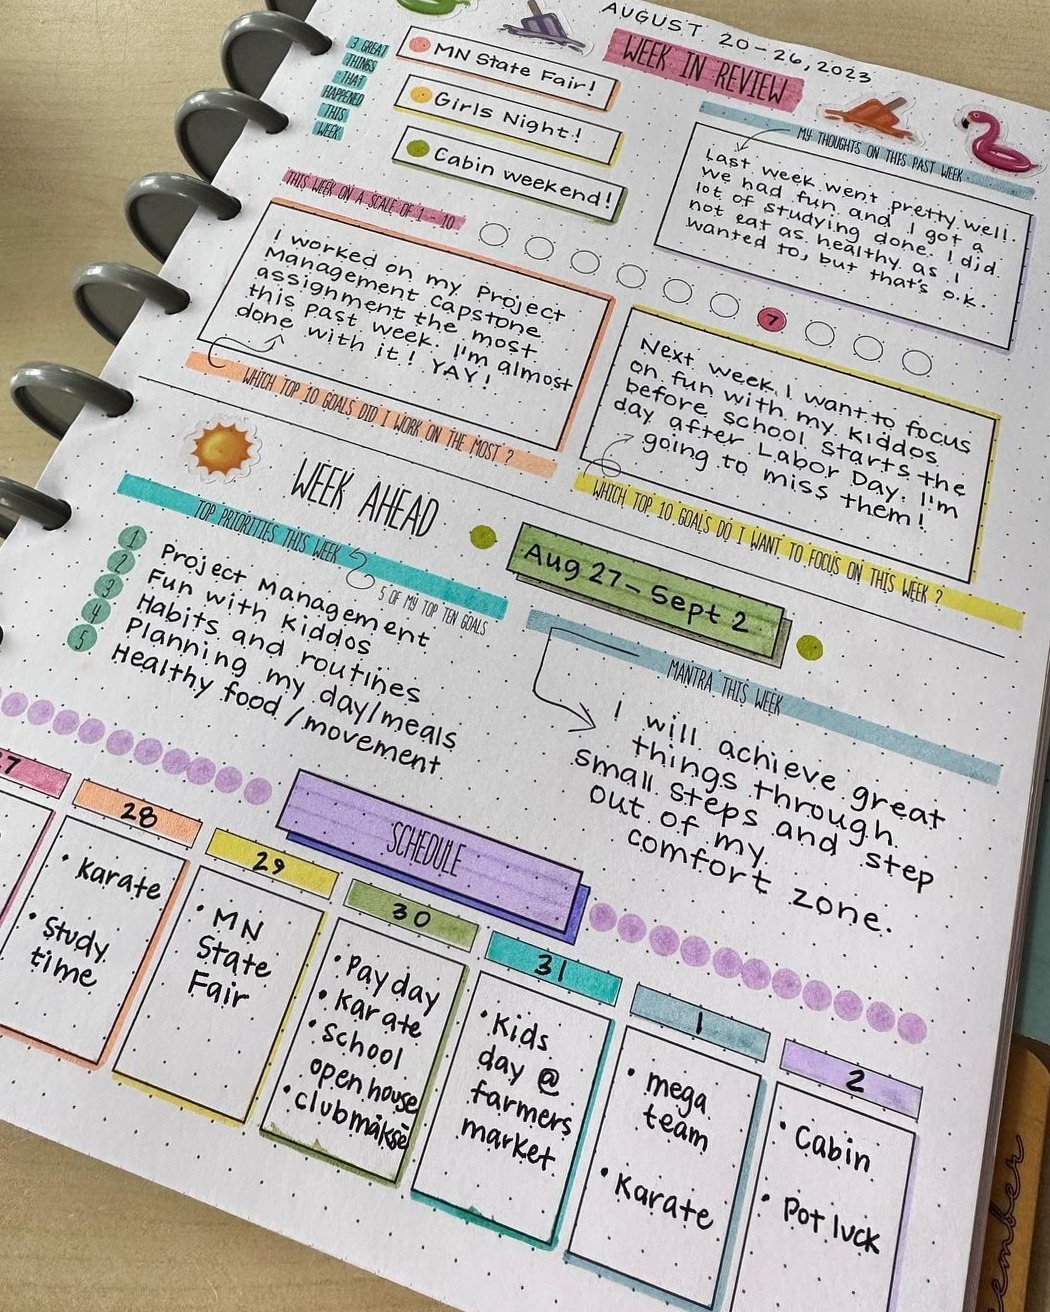 AUGUST 20-26, 2023
WEEK IN REVIEW
3 GREAT
THINGS
THAT
HAPPENED
THIS
WEEK
MN State Fair!
Girls Night!
Cabin weekend!
MY THOUGHTS ON THIS PAST WEEK
Last week went pretty well.
We had fun and I got a
lot of studying done. I did
not eat as healthy as I
wanted to, but that's o.k.
THIS WEEK ON A SCALE OF 1 - 10
7
I worked on my Project
Management Capstone
assignment the most
this past week. I'm almost
done with it! YAY!
WHICH TOP 10 GOALS DID I WORK ON THE MOST?
Next week, I want to focus
on fun with my kiddos
before school starts the
day after Labor Day. I'm
going to miss them!
WHICH TOP 10 GOALS DO I WANT TO FOCUS ON THIS WEEK?
WEEK AHEAD
Aug 27-Sept 2
TOP PRIORITIES THIS WEEK
5 OF MY TOP TEN GOALS
1 Project Management
2 Fun with kiddos
3 Habits and routines
4 Planning my day/meals
5 Healthy food/movement
MANTRA THIS WEEK
I will achieve great
things through
small steps and step
out of my
comfort zone.
SCHEDULE
27
28
• Karate
• Study
time
29
• MN
State
Fair
30
• Pay day
• Karate
• School
open house
• club
31
• Kids
day @
farmers
market
1
• mega
team
• Karate
2
• Cabin
• Pot luck
ember